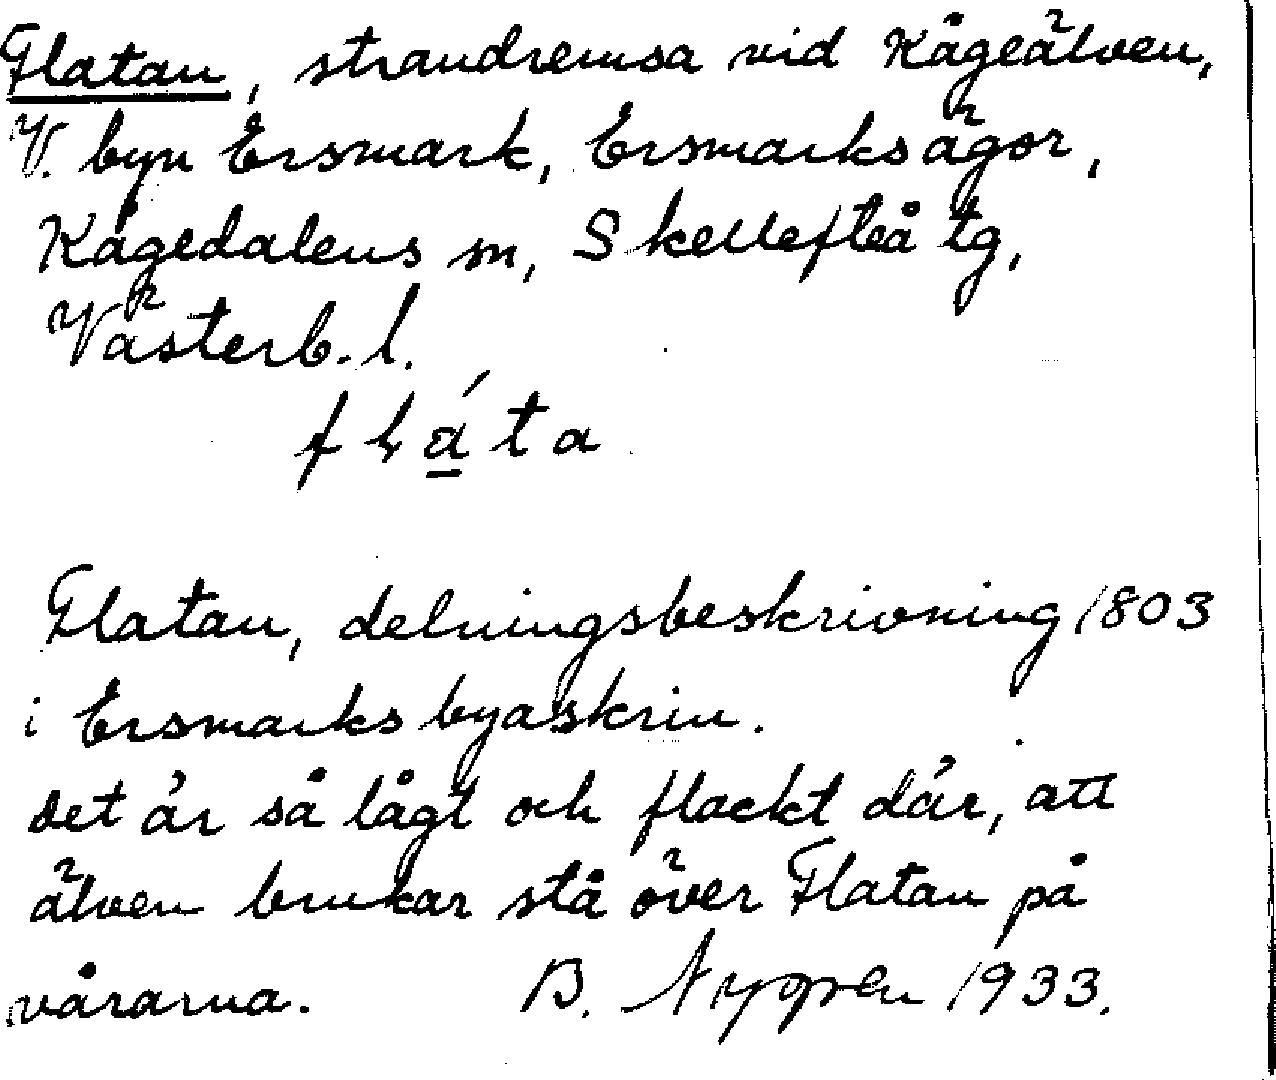 Flatan, strandremsa vid Kågeälven,
V. byn Ersmark, Ersmarksägor,
Kågedalens sn, Skellefteå tg,
Västerb. l.
fláta
Flatan, delningsbeskrivning 1803
i Ersmarks byaskrin.
det är så lågt och flackt där, att
älven brukar stå över Flatan på
vårarna. B. Nygren 1933.